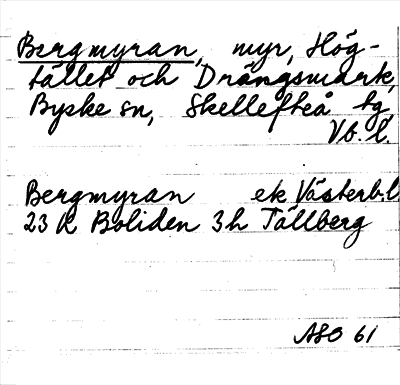 Bergmyran, myr, Hög-
tället och Drängsmark,
Byske sn, Skellefteå tg,
Vb. l.
Bergmyran ek Västerb.l
23 K Boliden 3h Tällberg
ASO 61